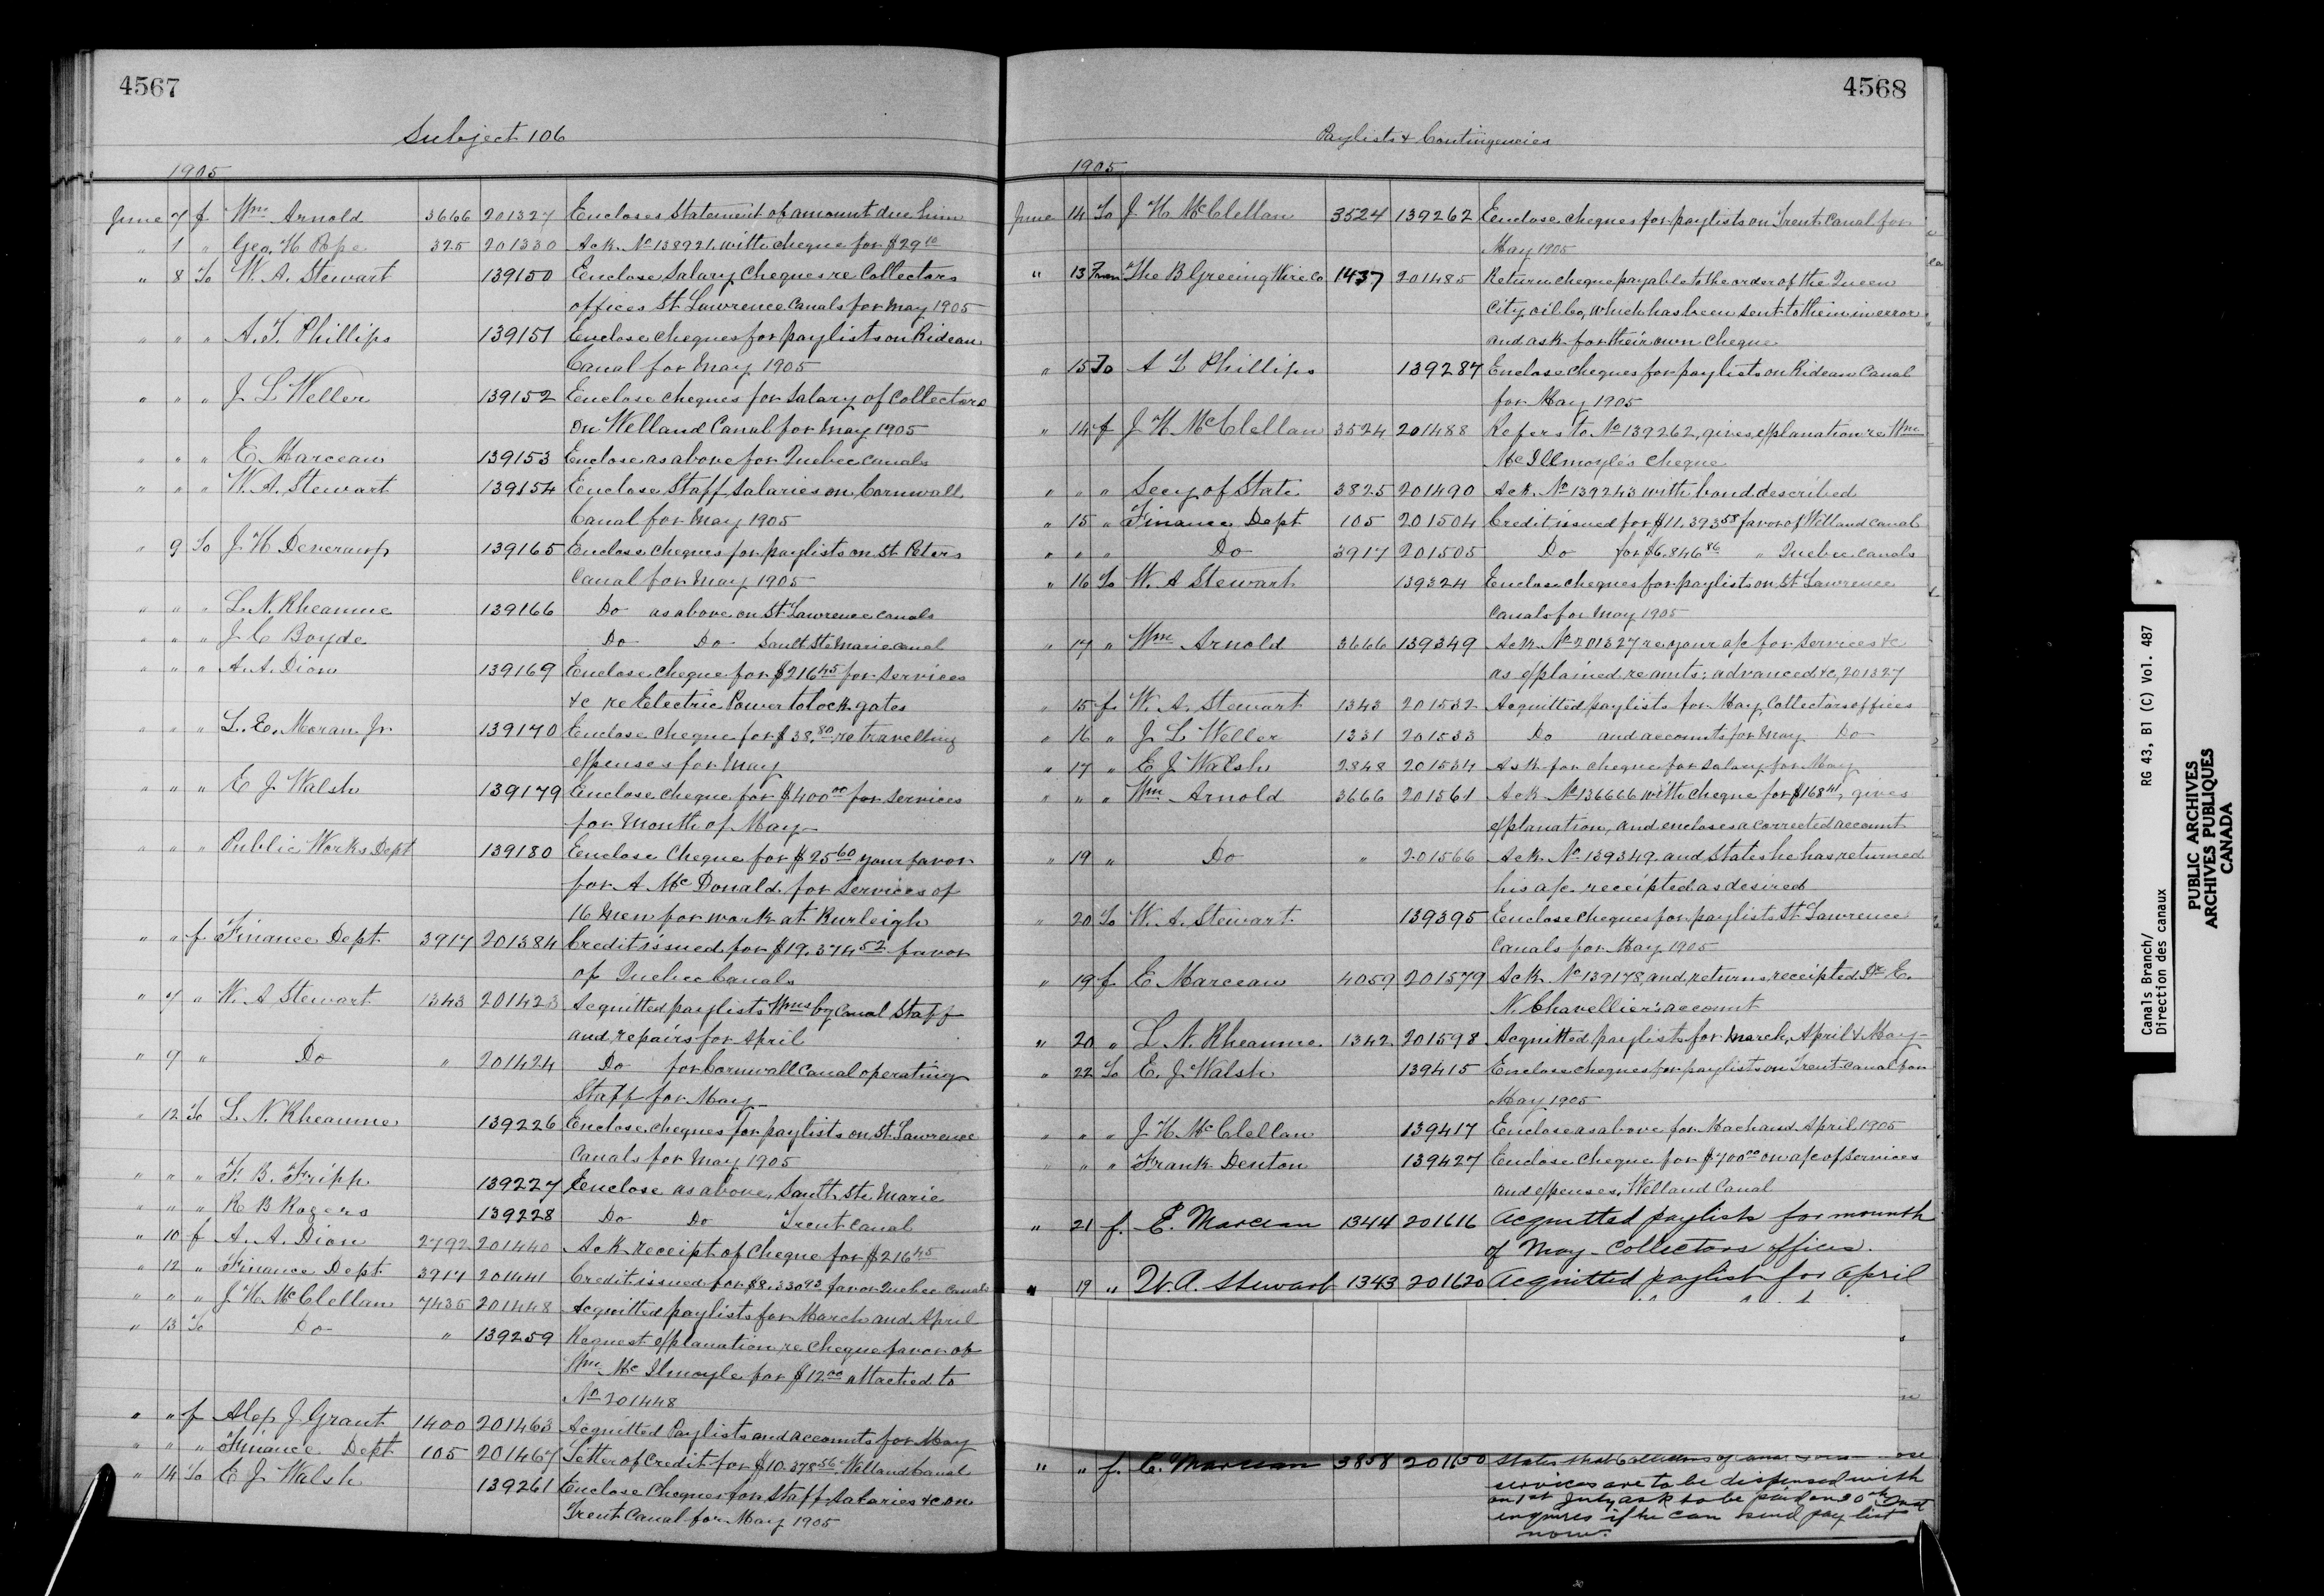 4567
Subject 106
1905
June 7 f Wm Arnold 3666 201327 Encloses Statement of amount due him
" 1 " Geo. H Pope 325 201330 Ack. No 138921. with cheque for $29 10
" 8 To W. A. Stewart 139150 Enclose Salary Cheques re Collectors
offices St Lawrence Canals for May 1905
" " " A. T. Phillips 139151 Enclose cheques for paylists on Rideau
Canal for May 1905
" " " J L Weller 139152 Enclose cheques for Salary of Collectors
on Welland Canal for May 1905
" " " E Marceau 139153 Enclose as above for Quebec Canals
" " " W. A. Stewart 139154 Enclose Staff Salaries on Cornwall
Canal for May 1905
" 9 To J H Devereux 139165 Enclose cheques for paylists on St Peters
Canal for May 1905
" " " L. N. Rheaume 139166 Do as above on St Lawrence Canals
" " " J C Boyde Do Do Sault Ste Marie Canal
" " " A. A. Dion 139169 Enclose cheque for $216 45 for Services
&c re Electric Power to lock gates
" " " L. E. Moran Jr. 139170 Enclose cheque for $38.80 re travelling
expenses for May
" " " E J Walsh 139179 Enclose cheque for $400 00 for Services
for Month of May
" " " Public Works Dept 139180 Enclose Cheque for $25 60 your favor
for A McDonald for Services of
16 men for work at Burleigh
" " f Finance Dept. 3917 201384 Credit issued for $19.374 52 favor
of Quebec Canals
" 7 " W. A Stewart 1343 201423 Acquitted paylists Wmsbg Canal Staff
and repairs for April
" 9 " Do " 201424 Do for Cornwall Canal operating
Staff for May
" 12 To L N. Rheaume 139226 Enclose cheques for paylists on St. Lawrence
Canals for May 1905
" " " F. B. Fripp 139227 Enclose as above, Sault Ste Marie
" " " R B Rogers 139228 Do Do Trent Canal
" 10 f A. A. Dion 2792 201440 Ack receipt of Cheque for $216 45
" 12 " Finance Dept. 3917 201441 Credit issued for $8.330 93 favor Quebec Canals
" " " J. H. McClellan 7435 201448 Acquitted paylists for March and April
" 13 To Do " 139259 Request explanation re Cheque favor of
Wm McIlmoyle for $12 00 attached to
No 201448
" " f Alex J Grant 1400 201463 Acquitted Paylists and accounts for May
" " " Finance Dept 105 201467 Letter of Credit for $10.378 56 Welland Canal
" 14 To E J Walsh 139261 Enclose Cheques for Staff Salaries &c on
Trent Canal for May 1905
4568
Paylists & Contingencies
1905
June 14 To J H McClellan 3524 139262 Enclose cheques for paylists on Trent Canal for
May 1905
" 13 From The B Greening Wire Co 1437 201485 Return cheque payable to the order of the Queen
City Oil Co, which has been sent to them in error
and ask for their own Cheque
" 15 To A T Phillips 139287 Enclose cheques for paylists on Rideau Canal
for May 1905
" 14 f J H McClellan 3524 201488 Refers to No 139262, gives explanation re Wm
McIllmoyle's Cheque
" " " Secy of State 3825 201490 Ack. No 139243 with bond described
" 15 " Finance Dept 105 201504 Credit issued for $11.393 58 favor of Welland Canal
" " " Do 3917 201505 Do for $6.846 86 " Quebec Canals
" 16 To W. A Stewart 139324 Enclose cheques for paylists on St. Lawrence
Canals for May 1905
" 17 " Wm Arnold 3666 139349 Ack No 201327 re your a/c for Services &c
as explained re amts: advanced &c, 201327
" 15 f W. A. Stewart 1343 201532 Acquitted paylists for May, Collectors offices
" 16 " J L Weller 1331 201533 Do and accounts for May Do
" 17 " E J Walsh 2848 201534 Ask for cheque for Salary for May
" " " Wm Arnold 3666 201561 Ack No 136666 with cheque for $168 41, gives
explanation, and encloses a corrected account
" 19 " Do " 201566 Ack. No 139349 and States he has returned
his a/c receipted as desired
" 20 To W. A. Stewart 139395 Enclose cheques for paylists St. Lawrence
Canals for May 1905
" 19 f E Marceau 4059 201579 Ack No 139178, and returns receipted Dr E.
N. Chavellier's account
" 20 " L N. Rheaume 1342 201598 Acquitted paylists for March, April & May
" 22 To E. J Walsh 139415 Enclose cheques for paylists on Trent Canal for
May 1905
" " " J H McClellan 139417 Enclose as above for Mach and April 1905
" " " Frank Denton 139427 Enclose cheque for $700 00 on a/c of Services
and expenses, Welland Canal
" 21 f. E. Marceau 1344 201616 Acquitted paylists for mounth
of May - Collectors offices.
" 19 " W. A. Stewart 1343 201620 Acquitted paylist for April
" " f. E. Marceau 3858 201650 States that Collectors of
services are to be dispensed with
on 1st July ask to be paid on 30th Inst
enquires if he can send pay list
now.
Canals Branch/
Direction des canaux
RG 43, B1 (C) Vol. 487
PUBLIC ARCHIVES
ARCHIVES PUBLIQUES
CANADA